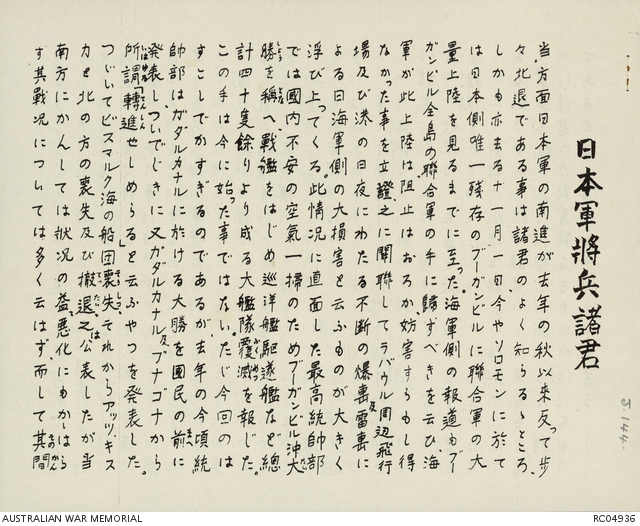 日本軍將兵諸君
当方面日本軍の南進が去年の秋以来反って歩
々北退である事は諸君のよく知らるゝところ、
しかも亦去る十一月一日今やソロモンに於て
は日本側唯一残存のブーガンビルに聯合軍の大
量上陸を見るまでに至った。海軍側の報道もブー
ガンビル全島の、聯合軍の手に歸すべきを云ひ、海
軍が此上陸は阻止はおろか、妨害すらもし得
なかった事を立證、之に関聯してラバウル周辺飛行
場及び港の日夜にわたる不断の爆撃及雷撃に
よる日海軍側の大損害を云ふものが大きく
浮び上ってくる。此情況に直面した最高統帥部
では國内不安の空氣一掃のためブーガンビル沖大
勝を稱へ、戰艦をはじめ巡洋艦駆逐艦など總
計四十隻餘りより成る大艦隊覆滅を報じた。
この手は今に始った事ではない。たゞ今回のは
すこしでかすぎるのであるが、去年の今頃統
帥部はガダルカナルに於ける大勝を國民の前に
発表し、ついでじきに又ガダルカナル及ブナゴナから
所謂「轉進せしめらる」と云ふやつを発表した。
つゞいてビスマルク海の船団喪失それからアッツ、キス
カと北の方の喪失及び撤退之公表したが当
南方にかんしては状況の益々悪化にもかゝはら
す其戰況については多く云はず、而して其間
J.144.
AUSTRALIAN WAR MEMORIAL
RC04936